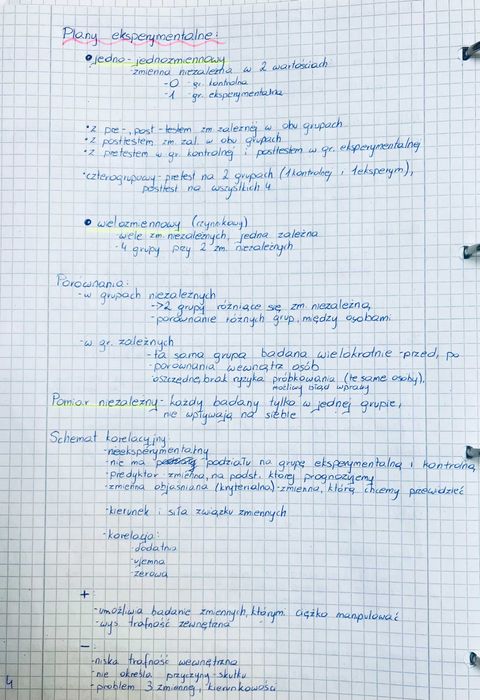 Plany eksperymentalne:
• jedno-jednozmiennowy
zmienna niezależna w 2 wartościach:
-0 gr. kontrolna
-1 gr. eksperymentalna
• z pre-, post-testem zm zależnej w obu grupach
• z posttestem zm zal. w obu grupach
• z pretestem w gr. kontrolnej i posttestem w gr. eksperymentalnej
• czterogrupowy-pretest na 2 grupach (1 kontrolnej i 1 eksperym),
posttest na wszystkich 4
• wielozmiennowy (czynnikowy)
-wiele zm. niezależnych, jedna zależna
-4 grupy przy 2 zm. niezależnych
Porównania:
-w grupach niezależnych
->2 grupy różniące się zm. niezależną
-porównanie różnych grup, między osobami
-w gr. zależnych
-ta sama grupa badana wielokrotnie-przed, po
-porównania wewnątrz osób
-oszczędne, brak ryzyka próbkowania (te same osoby),
możliwy błąd wprawy
Pomiar niezależny- każdy badany tylko w jednej grupie,
nie wpływają na siebie
Schemat korelacyjny:
-nieeksperymentalny
-nie ma podziału na grupę eksperymentalną i kontrolną
-predyktor-zmienna, na podst. której prognozujemy
-zmienna objaśniana (kryterialna)-zmienna, którą chcemy przewidzieć
-kierunek i siła związku zmiennych
-korelacja:
-dodatnia
-ujemna
-zerowa
+
-umożliwia badanie zmiennych, którymi ciężko manipulować
-wys trafność zewnętrzna
–
-niska trafność wewnętrzna
-nie określa przyczyny-skutku
-problem 3 zmiennej, kierunkowości
4